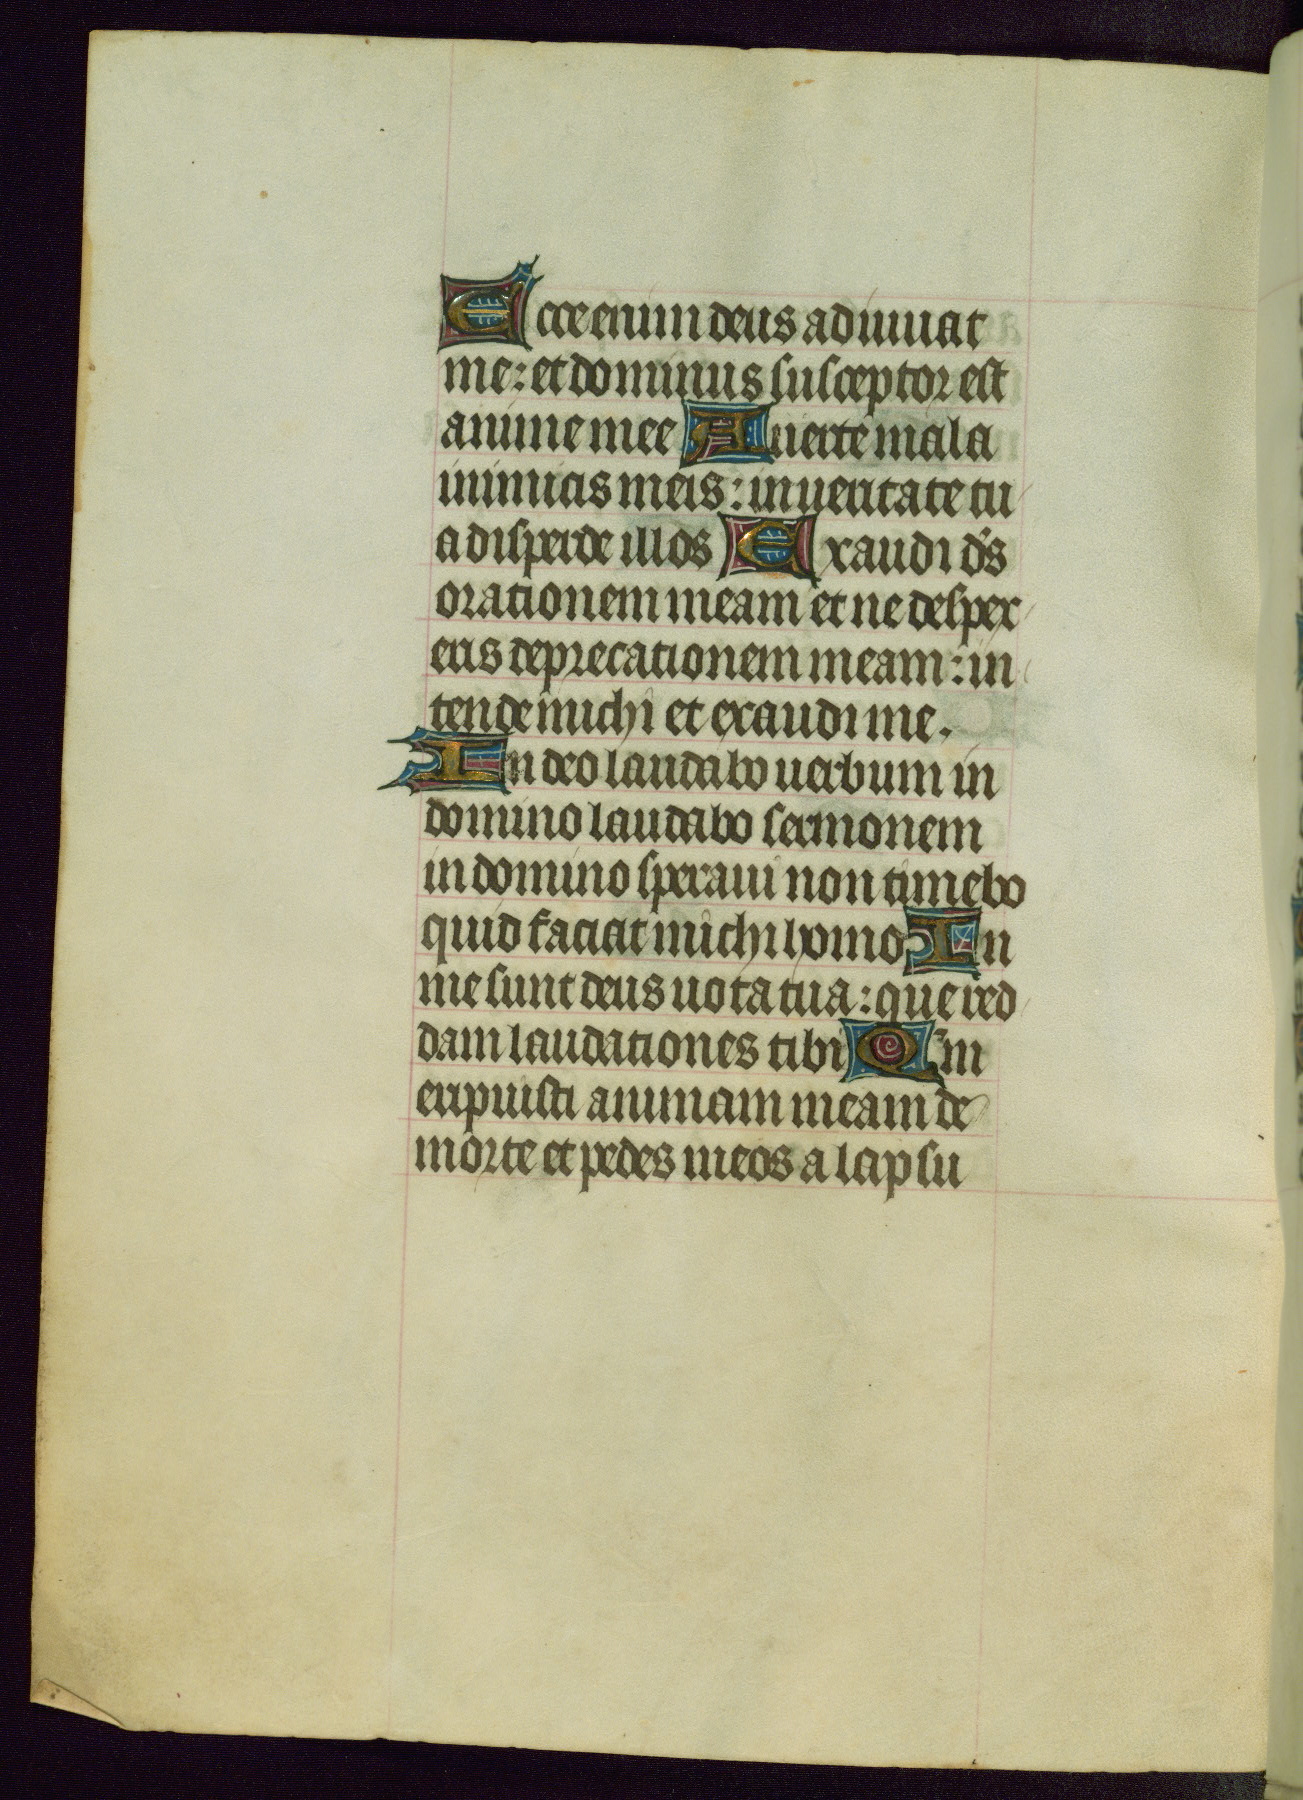 Ecce enim deus adiuuat
me: et dominus susceptor est
anime mee Auerte mala
inimicis meis: in ueritate tu
a disperde illos Exaudi ds̄
orationem meam et ne despex
eris deprecationem meam: in
tende michi et exaudi me.
In deo laudabo uerbum in
domino laudabo sermonem
in domino speraui non timebo
quid faciat michi homo In
me sunt deus uota tua: que red
dam laudationes tibi Qm̄
eripuisti animam meam de
morte et pedes meos a lapsu